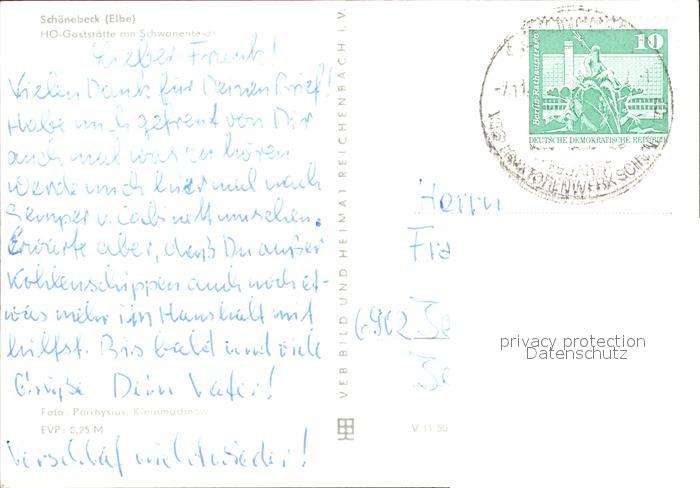 Schönebeck (Elbe)
HO-Gaststätte am Schwanenteich
Lieber Frank!
Vielen Dank für Deinen Brief!
Habe mich gefreut von Dir
auch mal was zu hören
werde mich hier mal nach
Semper u. Cabinett umsehen.
Erwarte aber, daß Du außer
Kohlenschippen auch noch et-
was mehr im Haushalt mit
hilfst. Bis bald und viele
Grüße Dein Vater!
Foto: Parrhysius, Kleinmachnow
EVP: 0,25 M
Verschlaf nicht wieder!
VEB BILD UND HEIMAT REICHENBACH I. V.
V 11 50
10
Berlin Rathausstraße
DEUTSCHE DEMOKRATISCHE REPUBLIK
-7.11.
VEB TRAKTORENWERK SCHÖN
Herrn
Fra
6902 Je
Je
privacy protection
Datenschutz